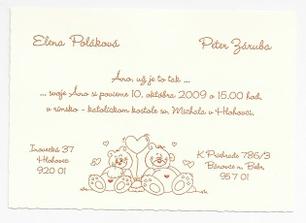 Elena Poláková
Peter Záruba
Áno, už je to tak ...
... svoje Áno si povieme 10. októbra 2009 o 15.00 hod.
v rímsko - katolíckom kostole sv. Michala v Hlohovci.
Inovecká 37
Hlohovec
920 01
K Priehrade 786/3
Bánovce n. Bebr.
957 01